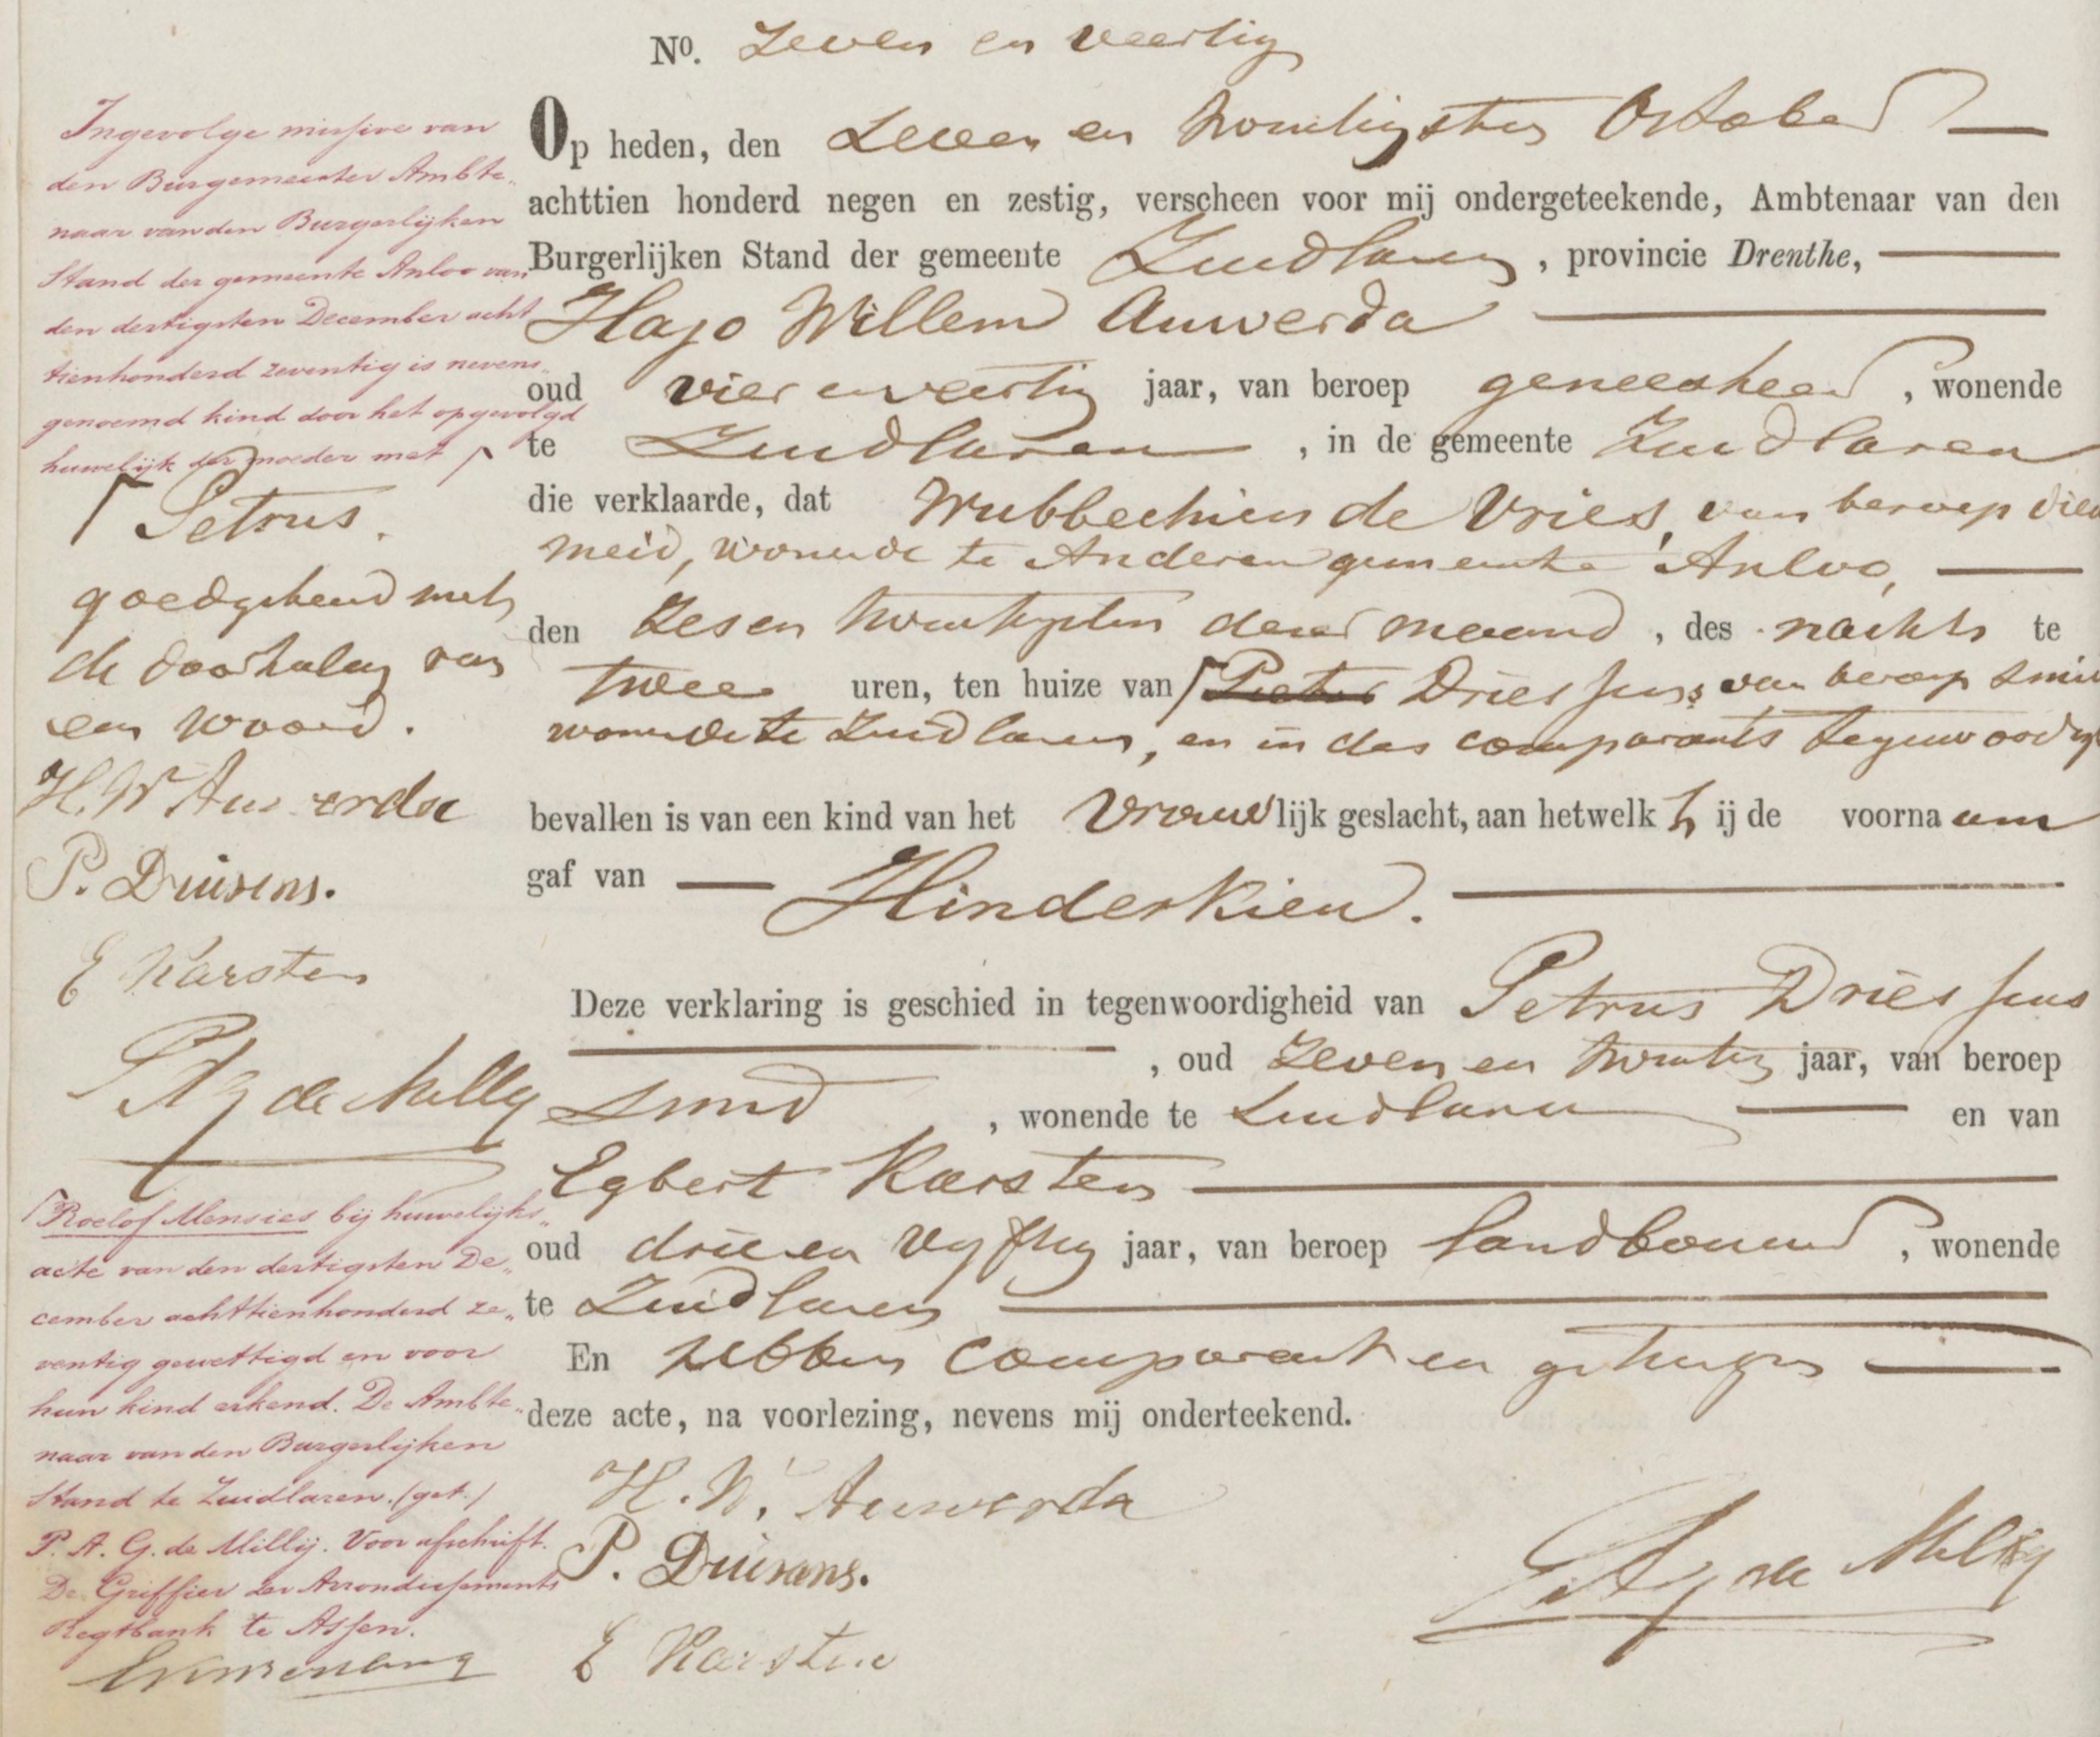 Nº. Zeven en veertig
Op heden, den Zeven en twintigsten October
achttien honderd negen en zestig, verscheen voor mij ondergeteekende, Ambtenaar van den
Burgerlijken Stand der gemeente Zuidlaren, provincie Drenthe,
Hajo Willem Auwerda
oud vier en veertig jaar, van beroep geneesheer, wonende
te Zuidlaren, in de gemeente Zuidlaren
die verklaarde, dat Wubbechien de Vries, van beroep dien
meid, wonende te Anderen gemeente Anloo,
den Zes en twintigsten dezer maand, des nachts te
twee uren, ten huize van ⌈ Pieter Driessens van beroep smid
wonende te Zuidlaren, en in des comparants tegenwoordig
bevallen is van een kind van het vrouwlijk geslacht, aan hetwelk hij de voornaam
gaf van Hinderkien.
Deze verklaring is geschied in tegenwoordigheid van Petrus Driessens
, oud Zeven en twintig jaar, van beroep
smid, wonende te Zuidlaren en van
Egbert Karsten
oud drie en vyftig jaar, van beroep landbouwer, wonende
te Zuidlaren
En hebben comparant en getuigen
deze acte, na voorlezing, nevens mij onderteekend.
H. W. Auwerda
P. Driesens.
E Karsten
PAG de Milly
Ingevolge missive van
den Burgemeester Ambte„
naar van den Burgerlijken
Stand der gemeente Anloo van
den dertigsten December acht
tienhonderd zeventig is nevens„
genoemd kind door het opgevolgd
huwelijk der moeder met ⌈
⌈ Petrus.
goedgekeurd met
de doorhaling van
een woord.
H. W Auwerda
P. Driesens.
E Karsten
PAG de Milly
⌈ Roelof Mensies bij huwelijks„
acte van den dertigsten De„
cember achttienhonderd ze„
ventig gewettigd en voor
hun kind erkend. De Ambte„
naar van den Burgerlijken
Stand te Zuidlaren. (get.)
P. A. G. de Millij. Voor afschrift.
De Griffier der Arrondissements
Regtbank te Assen.